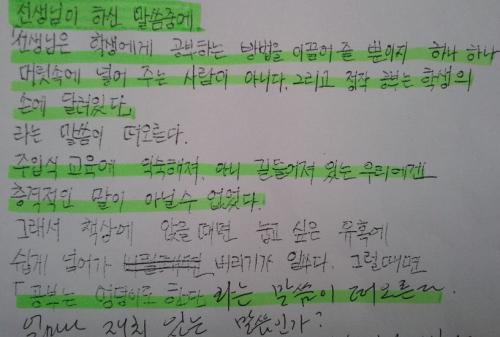 선생님이 하신 말씀중에
「선생님은 학생에게 공부하는 방법을 이끌어 줄 분이지 하나 하나
머릿속에 넣어 주는 사람이 아니다. 그리고 정작 공부는 학생의
손에 달려있다」
라는 말씀이 떠오른다.
주입식 교육에 익숙해져, 아니 길들어져 있는 우리에겐
충격적인 말이 아닐수 없었다.
그래서 책상에 앉을 때면 눕고 싶은 유혹에
쉽게 넘어가 버리기가 일쑤다. 그럴때면
「공부는 엉덩이로 한다 라는 말씀이 떠오른다.
얼마나 재치 있는 말씀인가?